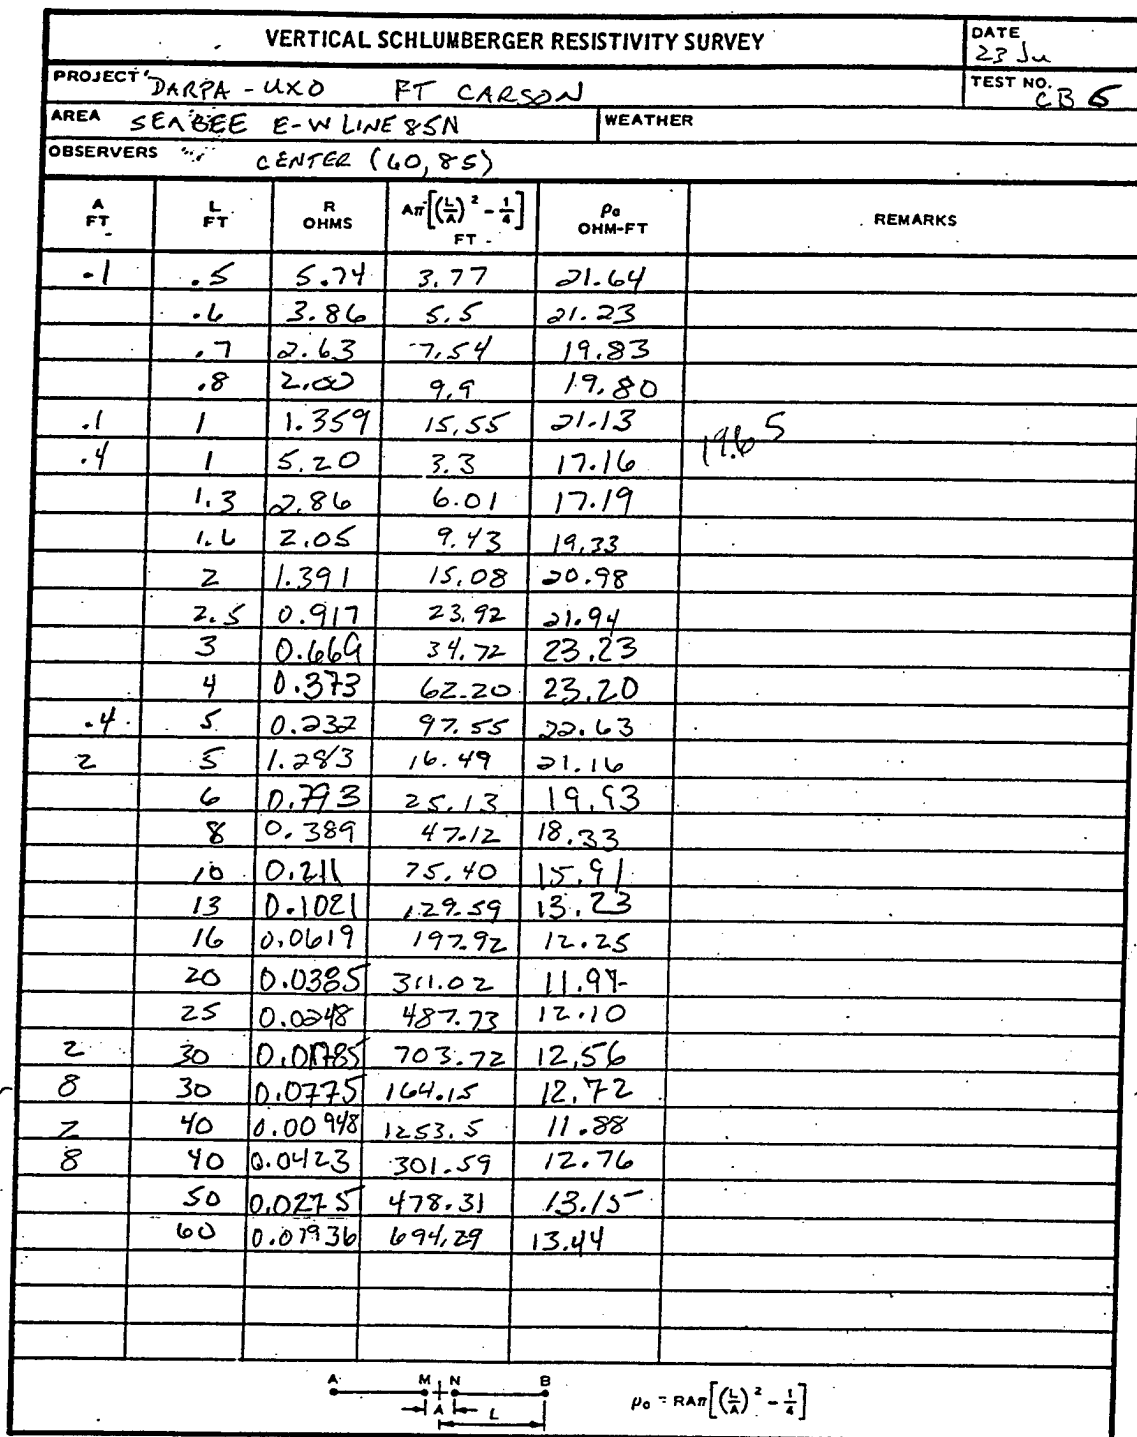 VERTICAL SCHLUMBERGER RESISTIVITY SURVEY
DATE
23 Ju
PROJECT DARPA - UXO FT CARSON
TEST NO. CB 5
AREA SEABEE E-W LINE 85N
WEATHER
OBSERVERS CENTER (60, 85)
A FT L FT R OHMS Aπ[(L/A)² - 1/4] FT ρa OHM-FT REMARKS
.1 .5 5.74 3.77 21.64
.6 3.86 5.5 21.23
.7 2.63 7.54 19.83
.8 2.00 9.9 19.80
.1 1 1.359 15.55 21.13
19.65
.4 1 5.20 3.3 17.16
1.3 2.86 6.01 17.19
1.6 2.05 9.43 19.33
2 1.391 15.08 20.98
2.5 0.917 23.92 21.94
3 0.669 34.72 23.23
4 0.373 62.20 23.20
.4 5 0.232 97.55 22.63
2 5 1.283 16.49 21.16
6 0.793 25.13 19.93
8 0.389 47.12 18.33
10 0.211 75.40 15.91
13 0.1021 129.59 13.23
16 0.0619 197.92 12.25
20 0.0385 311.02 11.97
25 0.0248 487.73 12.10
2 30 0.01785 703.72 12.56
8 30 0.0775 164.15 12.72
2 40 0.00948 1253.5 11.88
8 40 0.0423 301.59 12.76
50 0.0275 478.31 13.15
60 0.01936 694.29 13.44
A M N B
A L
ρa = RAπ[(L/A)² - 1/4]